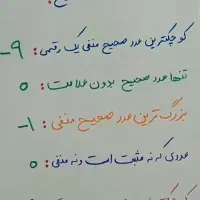 کوچکترین عدد صحیح منفی یک رقمی: ۹-
تنها عدد صحیح بدون علامت: ۰
بزرگترین عدد صحیح منفی: ۱-
عددی که نه مثبت است و نه منفی: ۰